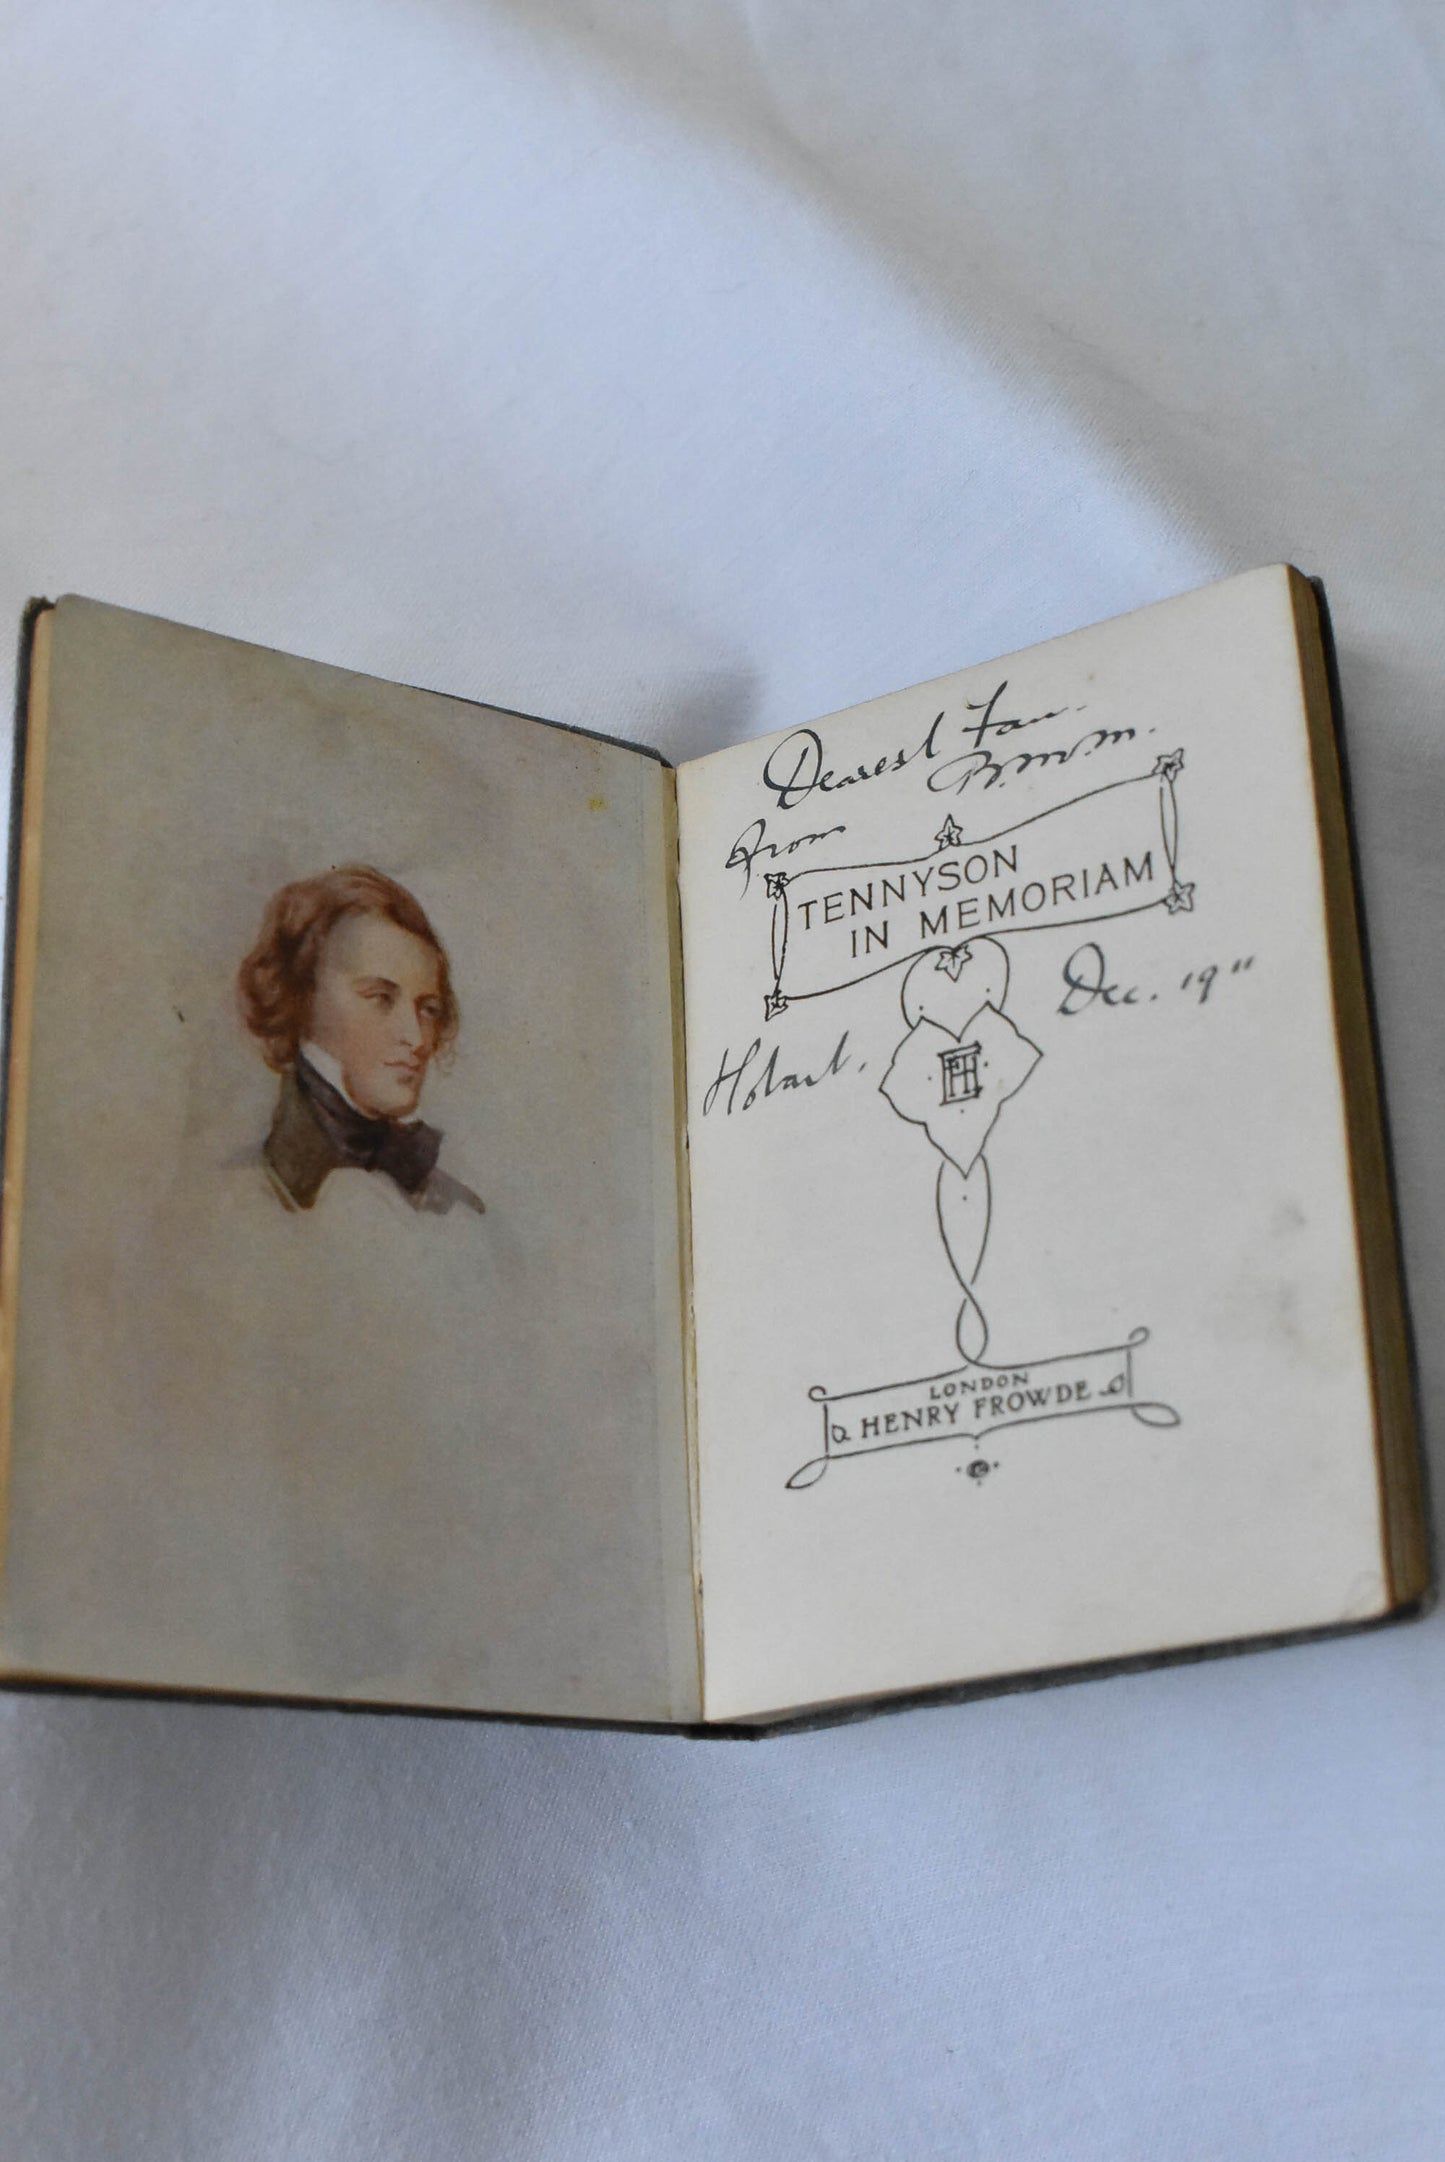 Dearest Fan.
From B.M.M.
TENNYSON
IN MEMORIAM
Dec. 19"
Hobart.
FH
LONDON
HENRY FROWDE